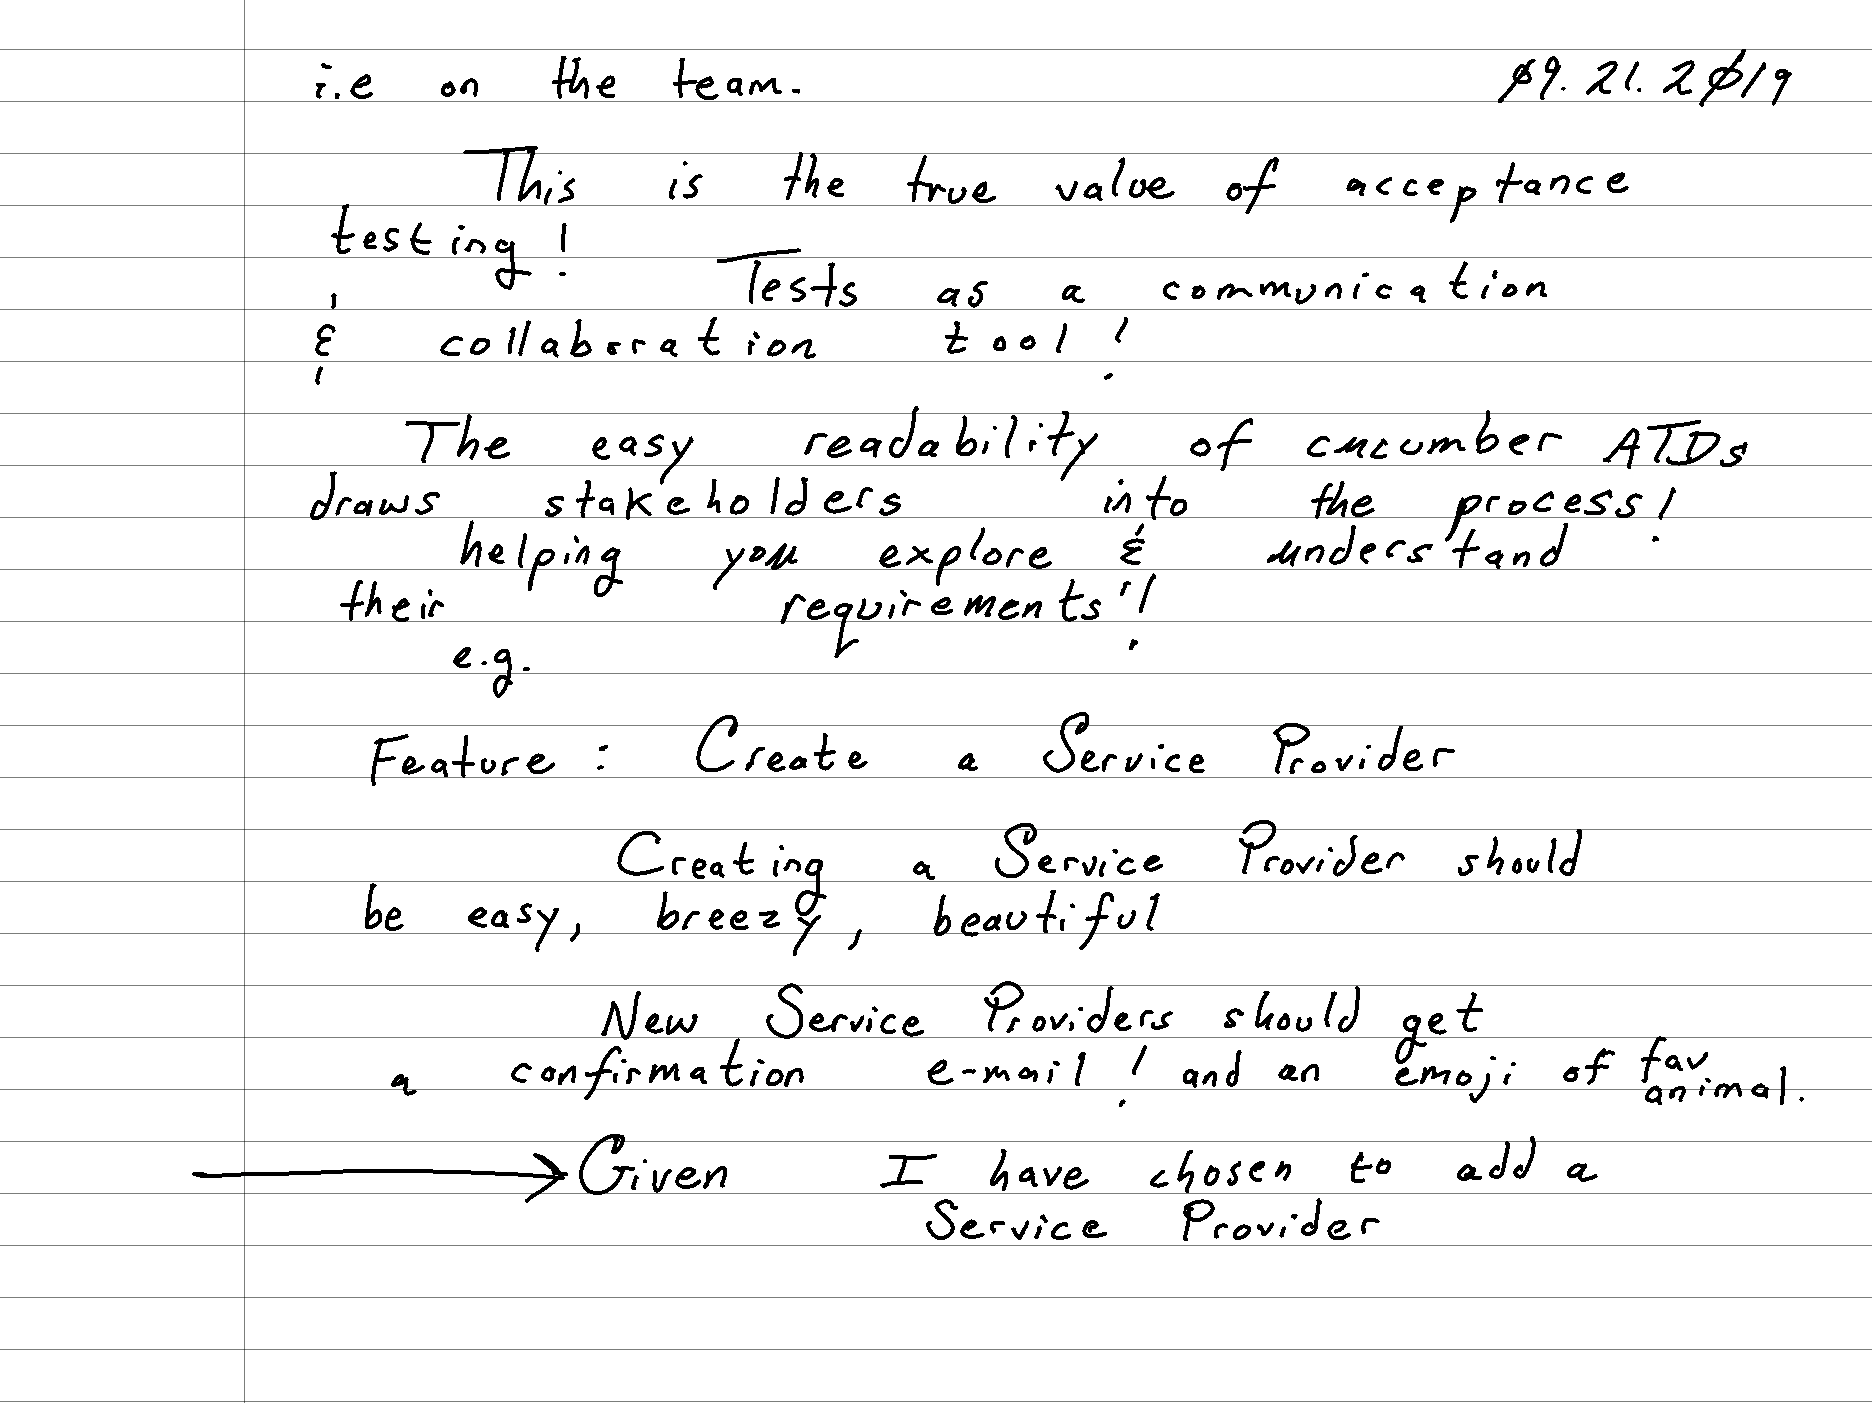 i.e on the team. 09.21.2019
This is the true value of acceptance
testing!
Tests as a communication
& collaboration tool!
The easy readability of cucumber ATDs
draws stakeholders into the process!
helping you explore & understand
their requirements"!
e.g.
Feature: Create a Service Provider
Creating a Service Provider should
be easy, breezy, beautiful
New Service Providers should get
a confirmation e-mail! and an emoji of fav
animal.
Given I have chosen to add a
Service Provider